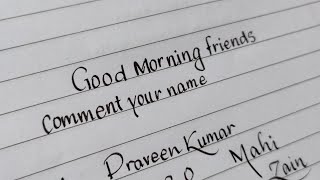 Good Morning friends
Comment your name
Praveen Kumar
Mahi
Zain